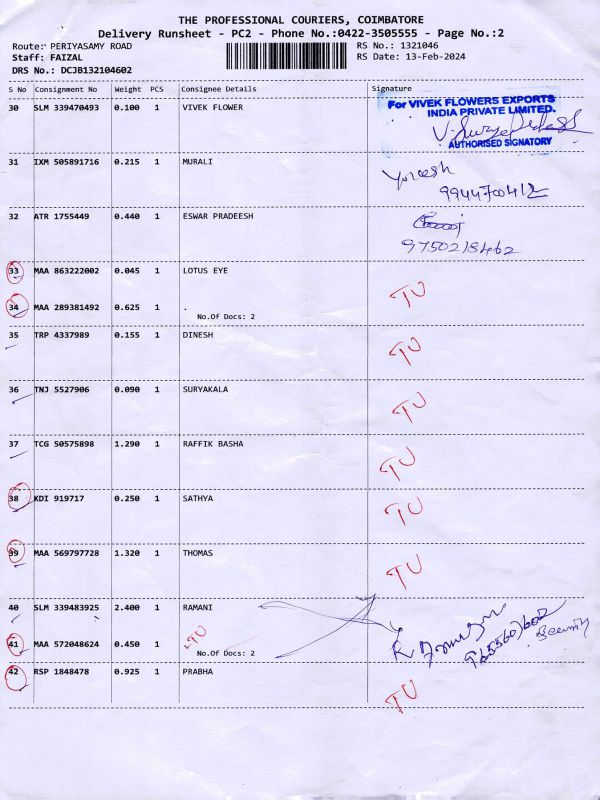 THE PROFESSIONAL COURIERS, COIMBATORE
Delivery Runsheet - PC2 - Phone No.:0422-3505555 - Page No.:2
Route: PERIYASAMY ROAD
RS No.: 1321046
Staff: FAIZAL
RS Date: 13-Feb-2024
DRS No.: DCJB132104602
S No Consignment No Weight PCS Consignee Details Signature
30 SLM 339470493 0.100 1 VIVEK FLOWER
For VIVEK FLOWERS EXPORTS
INDIA PRIVATE LIMITED.
AUTHORISED SIGNATORY
31 IXM 505891716 0.215 1 MURALI
9944700412
32 ATR 1755449 0.440 1 ESWAR PRADEESH
9750218462
33 MAA 863222002 0.045 1 LOTUS EYE
34 MAA 289381492 0.625 1 . TU
No.Of Docs: 2
35 TRP 4337989 0.155 1 DINESH TU
36 TNJ 5527906 0.090 1 SURYAKALA TU
37 TCG 50575898 1.290 1 RAFFIK BASHA TU
38 KDI 919717 0.250 1 SATHYA TU
39 MAA 569797728 1.320 1 THOMAS TU
40 SLM 339483925 2.400 1 RAMANI
41 MAA 572048624 0.450 1 TU
No.Of Docs: 2
42 RSP 1848478 0.925 1 PRABHA TU